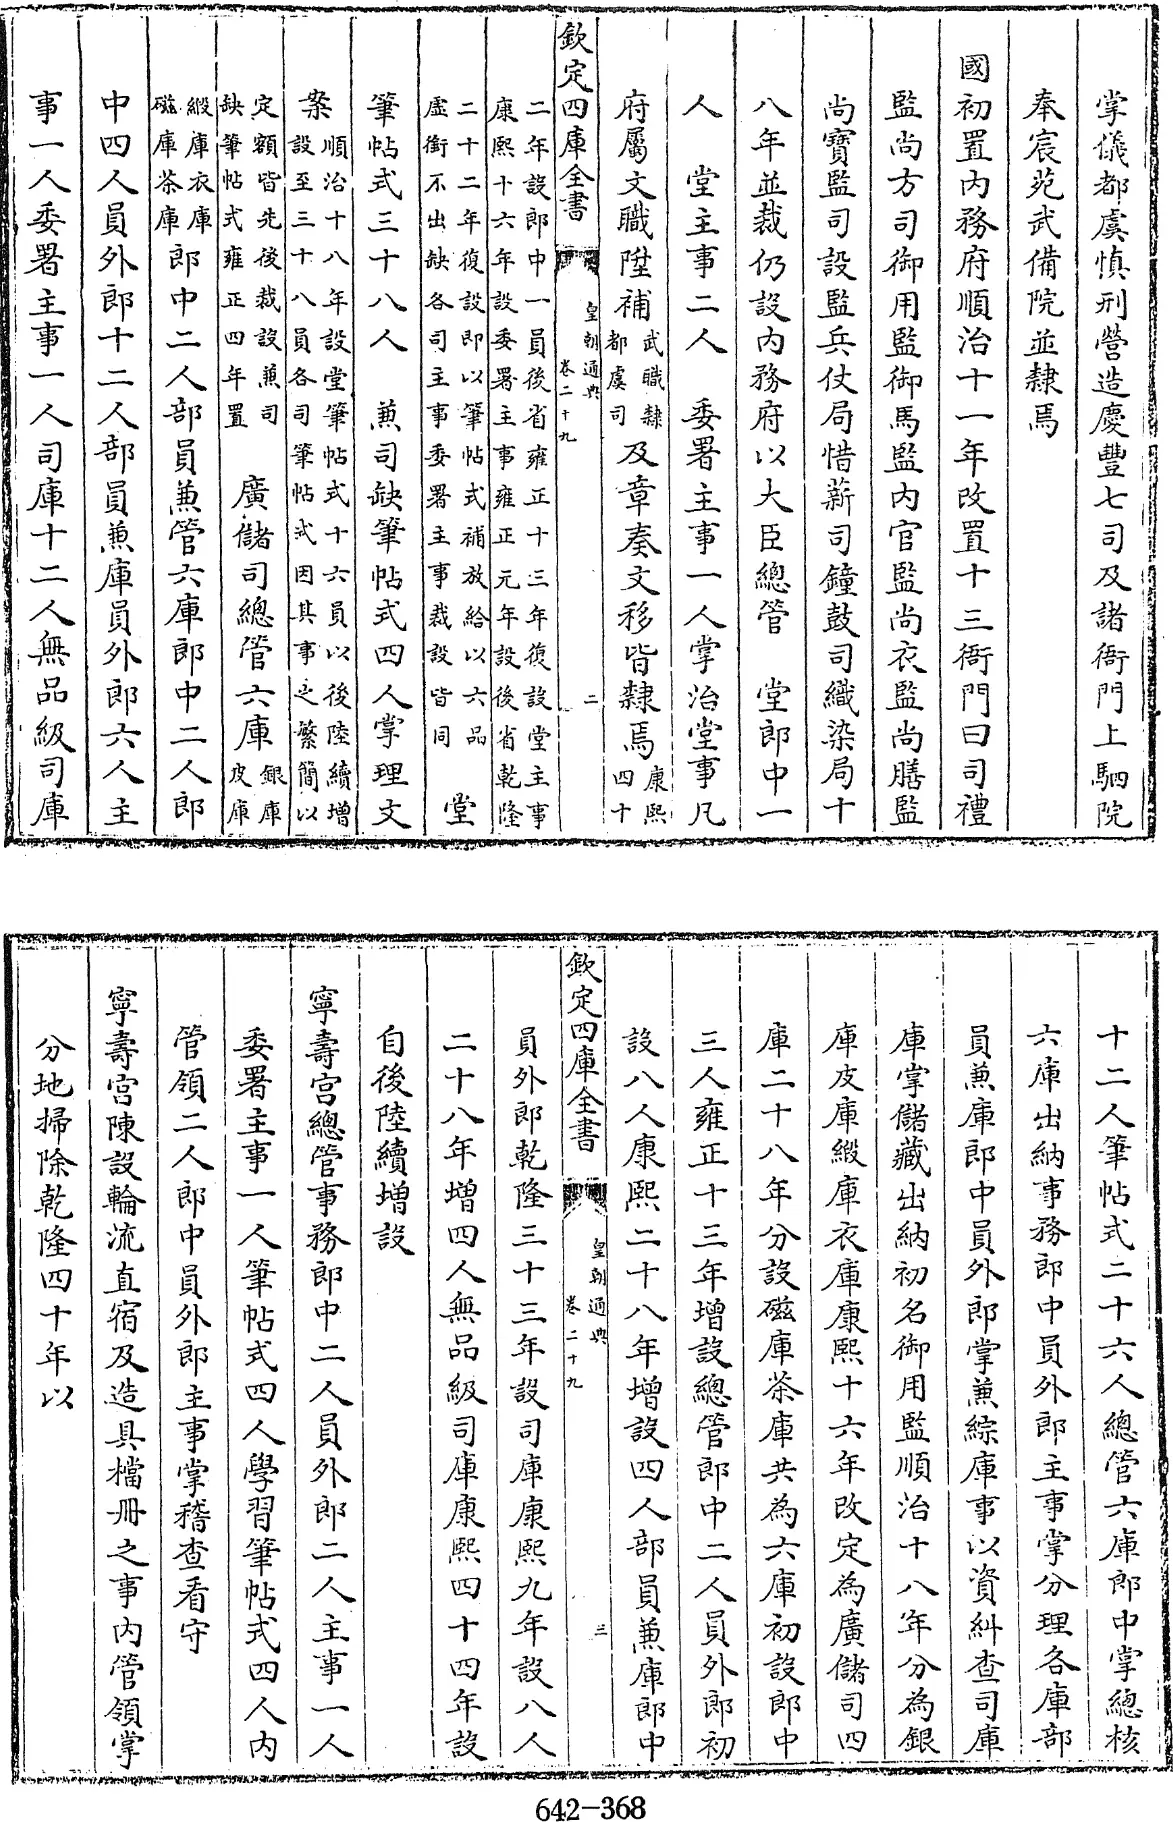 掌儀都虞慎刑營造慶豐七司及諸衙門上駟院
奉宸苑武備院並隸焉
國初置内務府順治十一年改置十三衙門曰司禮
監尚方司御用監御馬監内官監尚衣監尚膳監
尚寶監司設監兵仗局惜薪司鐘鼓司織染局十
八年並裁仍設内務府以大臣總管　堂郎中一
人　堂主事二人　委署主事一人掌治堂事凡
府屬文職陞補武職隸都虞司及章奏文移皆隸焉康熙四十
欽定四庫全書
皇朝通典
卷二十九
二
二年設郎中一員後省雍正十三年復設堂主事
康熙十六年設委署主事雍正元年設後省乾隆
二十二年復設即以筆帖式補放給以六品
虛銜不出缺各司主事委署主事裁設皆同　堂
筆帖式三十八人　兼司缺筆帖式四人掌理文
案順治十八年設堂筆帖式十六員以後陸續增
設至三十八員各司筆帖式因其事之繁簡以
定額皆先後裁設兼司
缺筆帖式雍正四年置　廣儲司總管六庫銀庫皮庫
緞庫衣庫
磁庫茶庫郎中二人部員兼管六庫郎中二人郎
中四人員外郎十二人部員兼庫員外郎六人主
事一人委署主事一人司庫十二人無品級司庫
十二人筆帖式二十六人總管六庫郎中掌總核
六庫出納事務郎中員外郎主事掌分理各庫部
員兼庫郎中員外郎掌兼綜庫事以資糾查司庫
庫掌儲藏出納初名御用監順治十八年分為銀
庫皮庫緞庫衣庫康熙十六年改定為廣儲司四
庫二十八年分設磁庫茶庫共為六庫初設郎中
三人雍正十三年增設總管郎中二人員外郎初
設八人康熙二十八年增設四人部員兼庫郎中
欽定四庫全書
皇朝通典
卷二十九
三
員外郎乾隆三十三年設司庫康熙九年設八人
二十八年增四人無品級司庫康熙四十四年設
自後陸續增設
寧壽宮總管事務郎中二人員外郎二人主事一人
委署主事一人筆帖式四人學習筆帖式四人内
管領二人郎中員外郎主事掌稽查看守
寧壽宮陳設輪流直宿及造具檔冊之事内管領掌
分地掃除乾隆四十年以
642-368